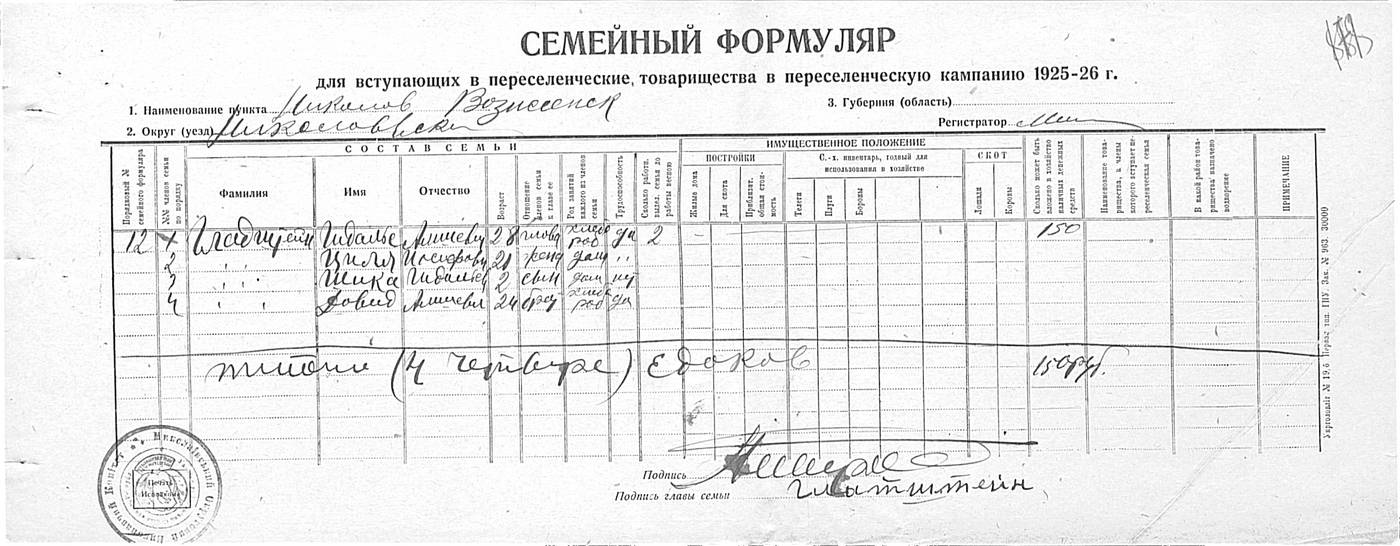 СЕМЕЙНЫЙ ФОРМУЛЯР
для вступающих в переселенческие, товарищества в переселенческую кампанию 1925-26 г.
1. Наименование пункта Николов Вознесенск
3. Губерния (область)
2. Округ (уезд) Николоевски
Регистратор
СОСТАВ СЕМЬИ
ИМУЩЕСТВЕННОЕ ПОЛОЖЕНИЕ
Порядковый № семейного формуляра
№№ членов семьи по порядку
Фамилия
Имя
Отчество
Возраст
Отношение членов семьи к главе ее
Род занятий каждого из членов семьи
Трудоспособность
Сколько работн. выдел. семья до работы весною
ПОСТРОЙКИ
Жилые дома
Для скота
Приблизит. общая стоимость
С.-х. инвентарь, годный для использования в хозяйстве
Телеги
Плуги
Бороны
СКОТ
Лошади
Коровы
Сколько может быть вложено в хозяйство наличных денежных средств
Наименование товарищества, в члены которого вступает переселенческая семья
В какой район товарищества назначено водворение
ПРИМЕЧАНИЕ
12 1 Гладштейн Гидалье 28 глова хлебороб да 2 — 150
2 " " Циля Иосифовн 21 жена дом "
3 " " Шика Гидальев 2 сын дом нет
4 " " Довид 24 брат хлебороб да
(4 четыре) Едоков 150 руб.
Подпись
Подпись главы семьи Глатштейн
Печать Исполкома